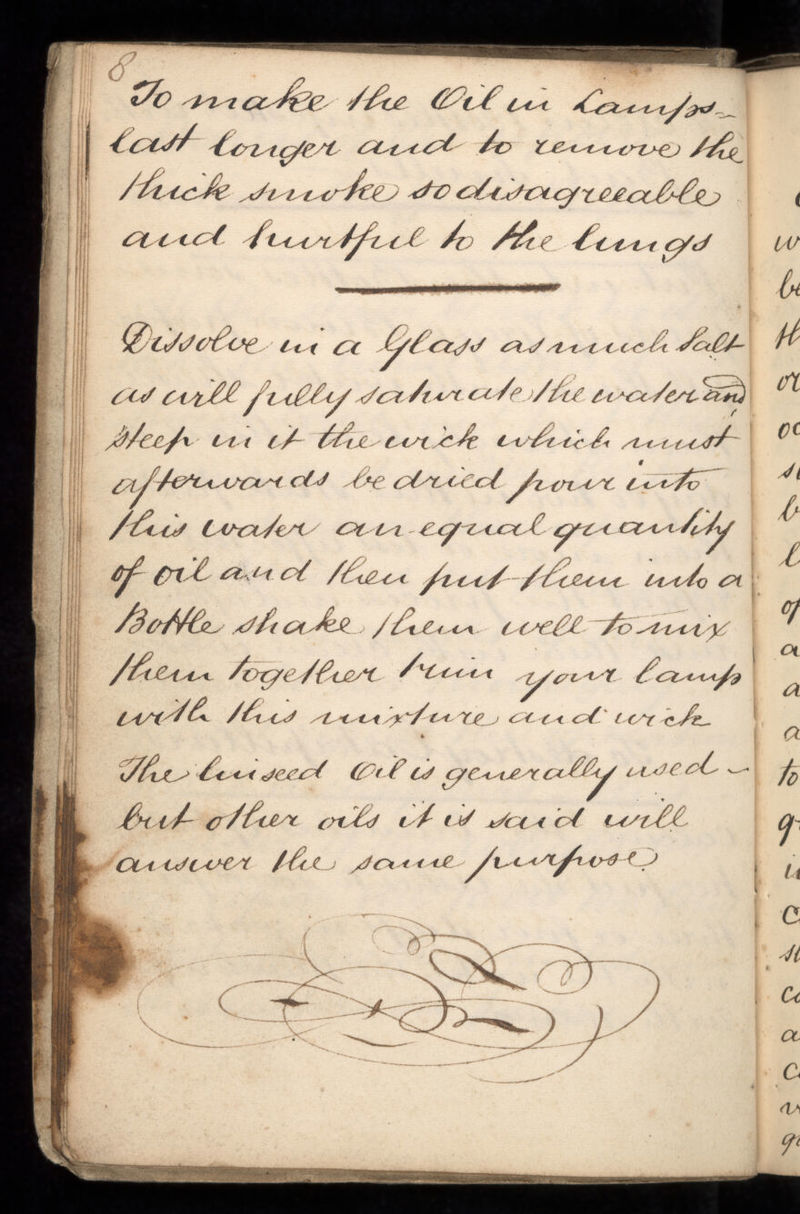 8
To make the Oil in Lamps
last longer and to remove the
thick smoke so disagreeable
and hurtful to the lungs
Dissolve in a Glass as much Salt
as will fully saturate the water and
steep in it the wick which must
afterwards be dried pour into
this water an equal quantity
of oil and then put them into a
Bottle shake them well to mix
them together trim your lamp
with this mixture and wick
The linseed Oil is generally used
but other oils it is said will
answer the same purpose